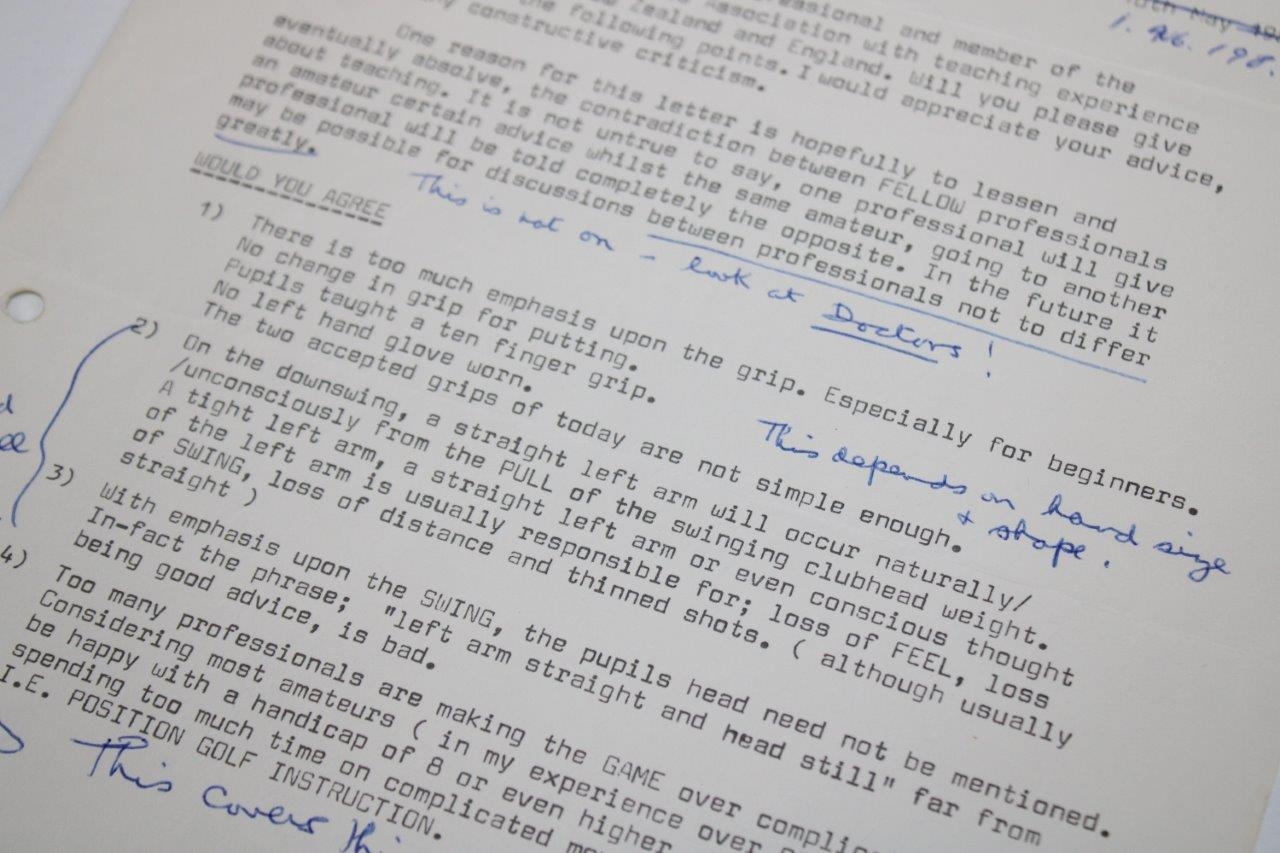 10th May 19
1. 26. 198.
essional and member of the
Association with teaching experience
Zealand and England. Will you please give
the following points. I would appreciate your advice,
constructive criticism.
One reason for this letter is hopefully to lessen and
eventually absolve, the contradiction between FELLOW professionals
about teaching. It is not untrue to say, one professional will give
an amateur certain advice whilst the same amateur, going to another
professional will be told completely the opposite. In the future it
may be possible for discussions between professionals not to differ
greatly.
This is not on - look at Doctors!
WOULD YOU AGREE
1) There is too much emphasis upon the grip. Especially for beginners.
No change in grip for putting.
Pupils taught a ten finger grip.
No left hand glove worn.
The two accepted grips of today are not simple enough.
This depends on hand size
+ shape.
2) On the downswing, a straight left arm will occur naturally/
/unconsciously from the PULL of the swinging clubhead weight.
A tight left arm, a straight left arm or even conscious thought
of the left arm is usually responsible for; loss of FEEL, loss
of SWING, loss of distance and thinned shots. ( although usually
straight )
3) With emphasis upon the SWING, the pupils head need not be mentioned.
In-fact the phrase; "left arm straight and head still" far from
being good advice, is bad.
4) Too many professionals are making the GAME over complic
Considering most amateurs ( in my experience over
be happy with a handicap of 8 or even higher
spending too much time on complicated
I.E. POSITION GOLF INSTRUCTION.
This covers